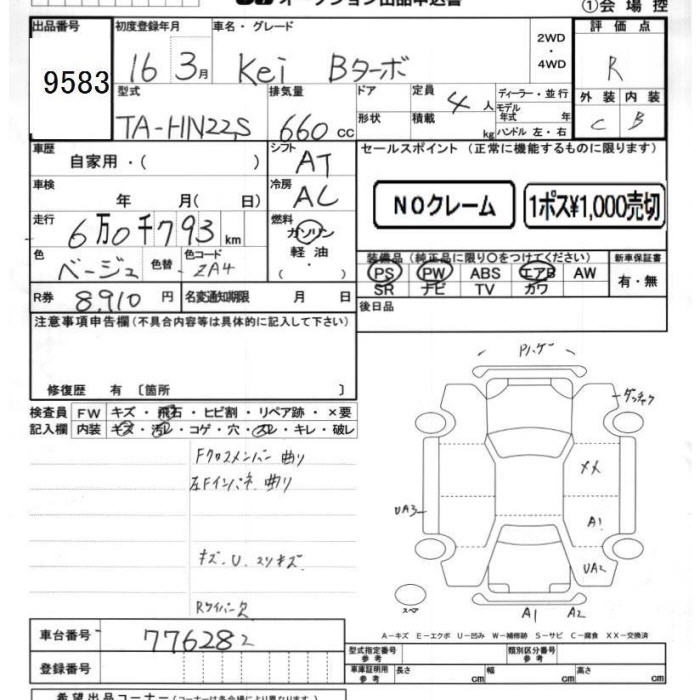 オークション出品申込書
①会場控
出品番号 9583
初度登録年月 16 3月
車名・グレード Kei Bターボ
2WD・4WD
評価点 R
外装 C 内装 B
型式 TA-HN22S
排気量 660cc
ドア形状
定員 4人
積載 kg
ディーラー・並行
モデル年式 年
ハンドル 左・右
車歴 自家用・( )
シフト AT
セールスポイント (正常に機能するものに限ります)
車検 年 月( 日)
冷房 AC
NOクレーム 1ポス¥1,000売切
走行 6万0千793km
燃料 ガソリン 軽油 ( ・ )
色 ベージュ 色替 色コード ZA4
装備品 (純正品に限り○をつけてください)
PS PW ABS エアB AW
SR ナビ TV カワ
新車保証書 有・無
R券 8,910円 名変通知期限 月 日
後日品
注意事項申告欄(不具合内容等は具体的に記入して下さい)
修復歴 有 〔箇所 〕
検査員記入欄
FW キズ・飛石・ヒビ割・リペア跡・×要
内装 キズ・汚レ・コゲ・穴・スレ・キレ・破レ
Fクロスメンバー 曲り
左Fインパネ 曲り
キズ. U. スリキズ
Rワイパー欠
XX
A1
UA3
UA2
スペア
A1 A2
A-キズ E-エクボ U-凹み W-補修跡 S-サビ C-腐食 XX-交換済
車台番号 776282
型式指定番号 参考
類別区分番号 参考
登録番号
車庫証明用 参考 長さ cm 幅 cm 高さ cm
希望出品コーナー